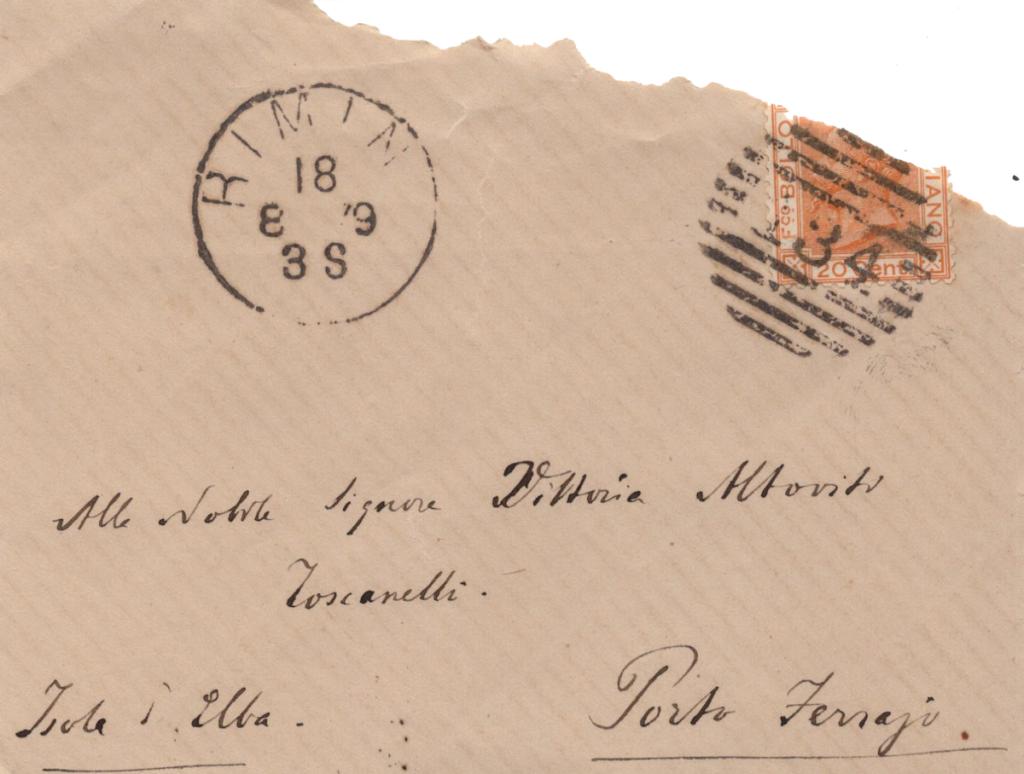 RIMIN
18
8 79
3 S
Fco BOLLO
IANO
20 Cent
34
Alla Nobile Signora Vittoria Altoviti
Toscanelli.
Isola d'Elba.
Porto Ferrajo